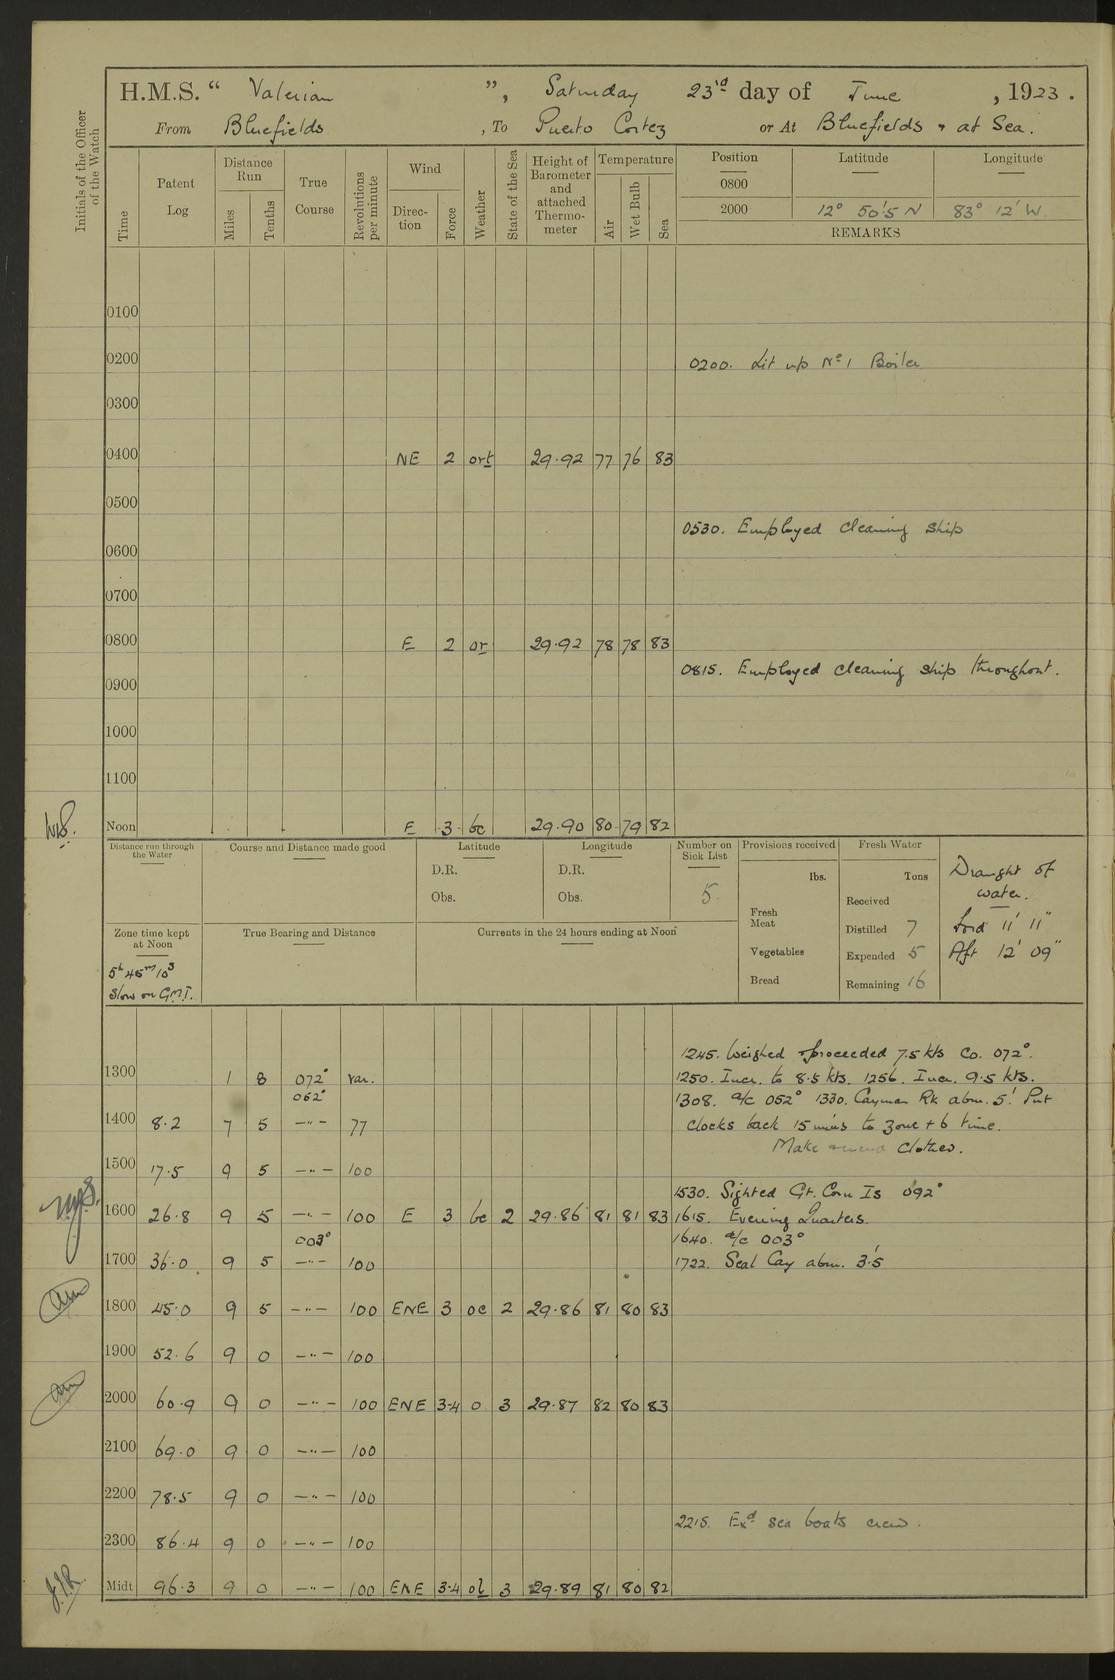 H.M.S. " Valerian ", Saturday 23rd day of June, 1923.
From Bluefields, To Puerto Cortez or At Bluefields & at Sea.
Initials of the Officer of the Watch
Time
Patent Log
Distance Run
Miles
Tenths
True Course
Revolutions per minute
Wind
Direc-tion
Force
Weather
State of the Sea
Height of Barometer and attached Thermo-meter
Temperature
Air
Wet Bulb
Sea
Position Latitude Longitude
0800
2000 12° 50'.5 N 83° 12' W.
REMARKS
0100
0200 0200. Lit up No 1 Boiler
0300
0400 NE 2 ort 29.92 77 76 83
0500
0530. Employed cleaning ship
0600
0700
0800 E 2 or 29.92 78 78 83
0815. Employed cleaning ship throughout.
0900
1000
1100
Noon E 3 bc 29.90 80 79 82
Distance run through the Water
Course and Distance made good
Latitude
D.R.
Obs.
Longitude
D.R.
Obs.
Number on Sick List
5
Provisions received
lbs.
Fresh Meat
Vegetables
Bread
Fresh Water
Tons
Received
Distilled 7
Expended 5
Remaining 16
Draught of water.
Ford 11' 11"
Aft 12' 09"
Zone time kept at Noon
5h 45m 10s
Slow on G.M.T.
True Bearing and Distance
Currents in the 24 hours ending at Noon
1245. Weighed & proceeded 7.5 kts Co. 072°.
1300 1 8 072° var. 1250. Incr. to 8.5 kts. 1256. Incr. 9.5 kts.
052° 1308. a/c 052° 1330. Cayman Rk abm. 5'. Put
1400 8.2 7 5 —"— 77 clocks back 15 mins to zone + 6 time.
Make & mend clothes.
1500 17.5 9 5 —"— 100
1530. Sighted Gt. Corn Is 092°
1600 26.8 9 5 —"— 100 E 3 bc 2 29.86 81 81 83 1615. Evening Quarters.
003° 1640. a/c 003°
1700 36.0 9 5 —"— 100 1722. Seal Cay abm. 3'.5
1800 45.0 9 5 —"— 100 ENE 3 oc 2 29.86 81 80 83
1900 52.6 9 0 —"— 100
2000 60.9 9 0 —"— 100 ENE 3-4 o 3 29.87 82 80 83
2100 69.0 9 0 —"— 100
2200 78.5 9 0 —"— 100
2215. Exd sea boats crew.
2300 86.4 9 0 —"— 100
Midt 96.3 9 0 —"— 100 ENE 3-4 ol 3 29.89 81 80 82